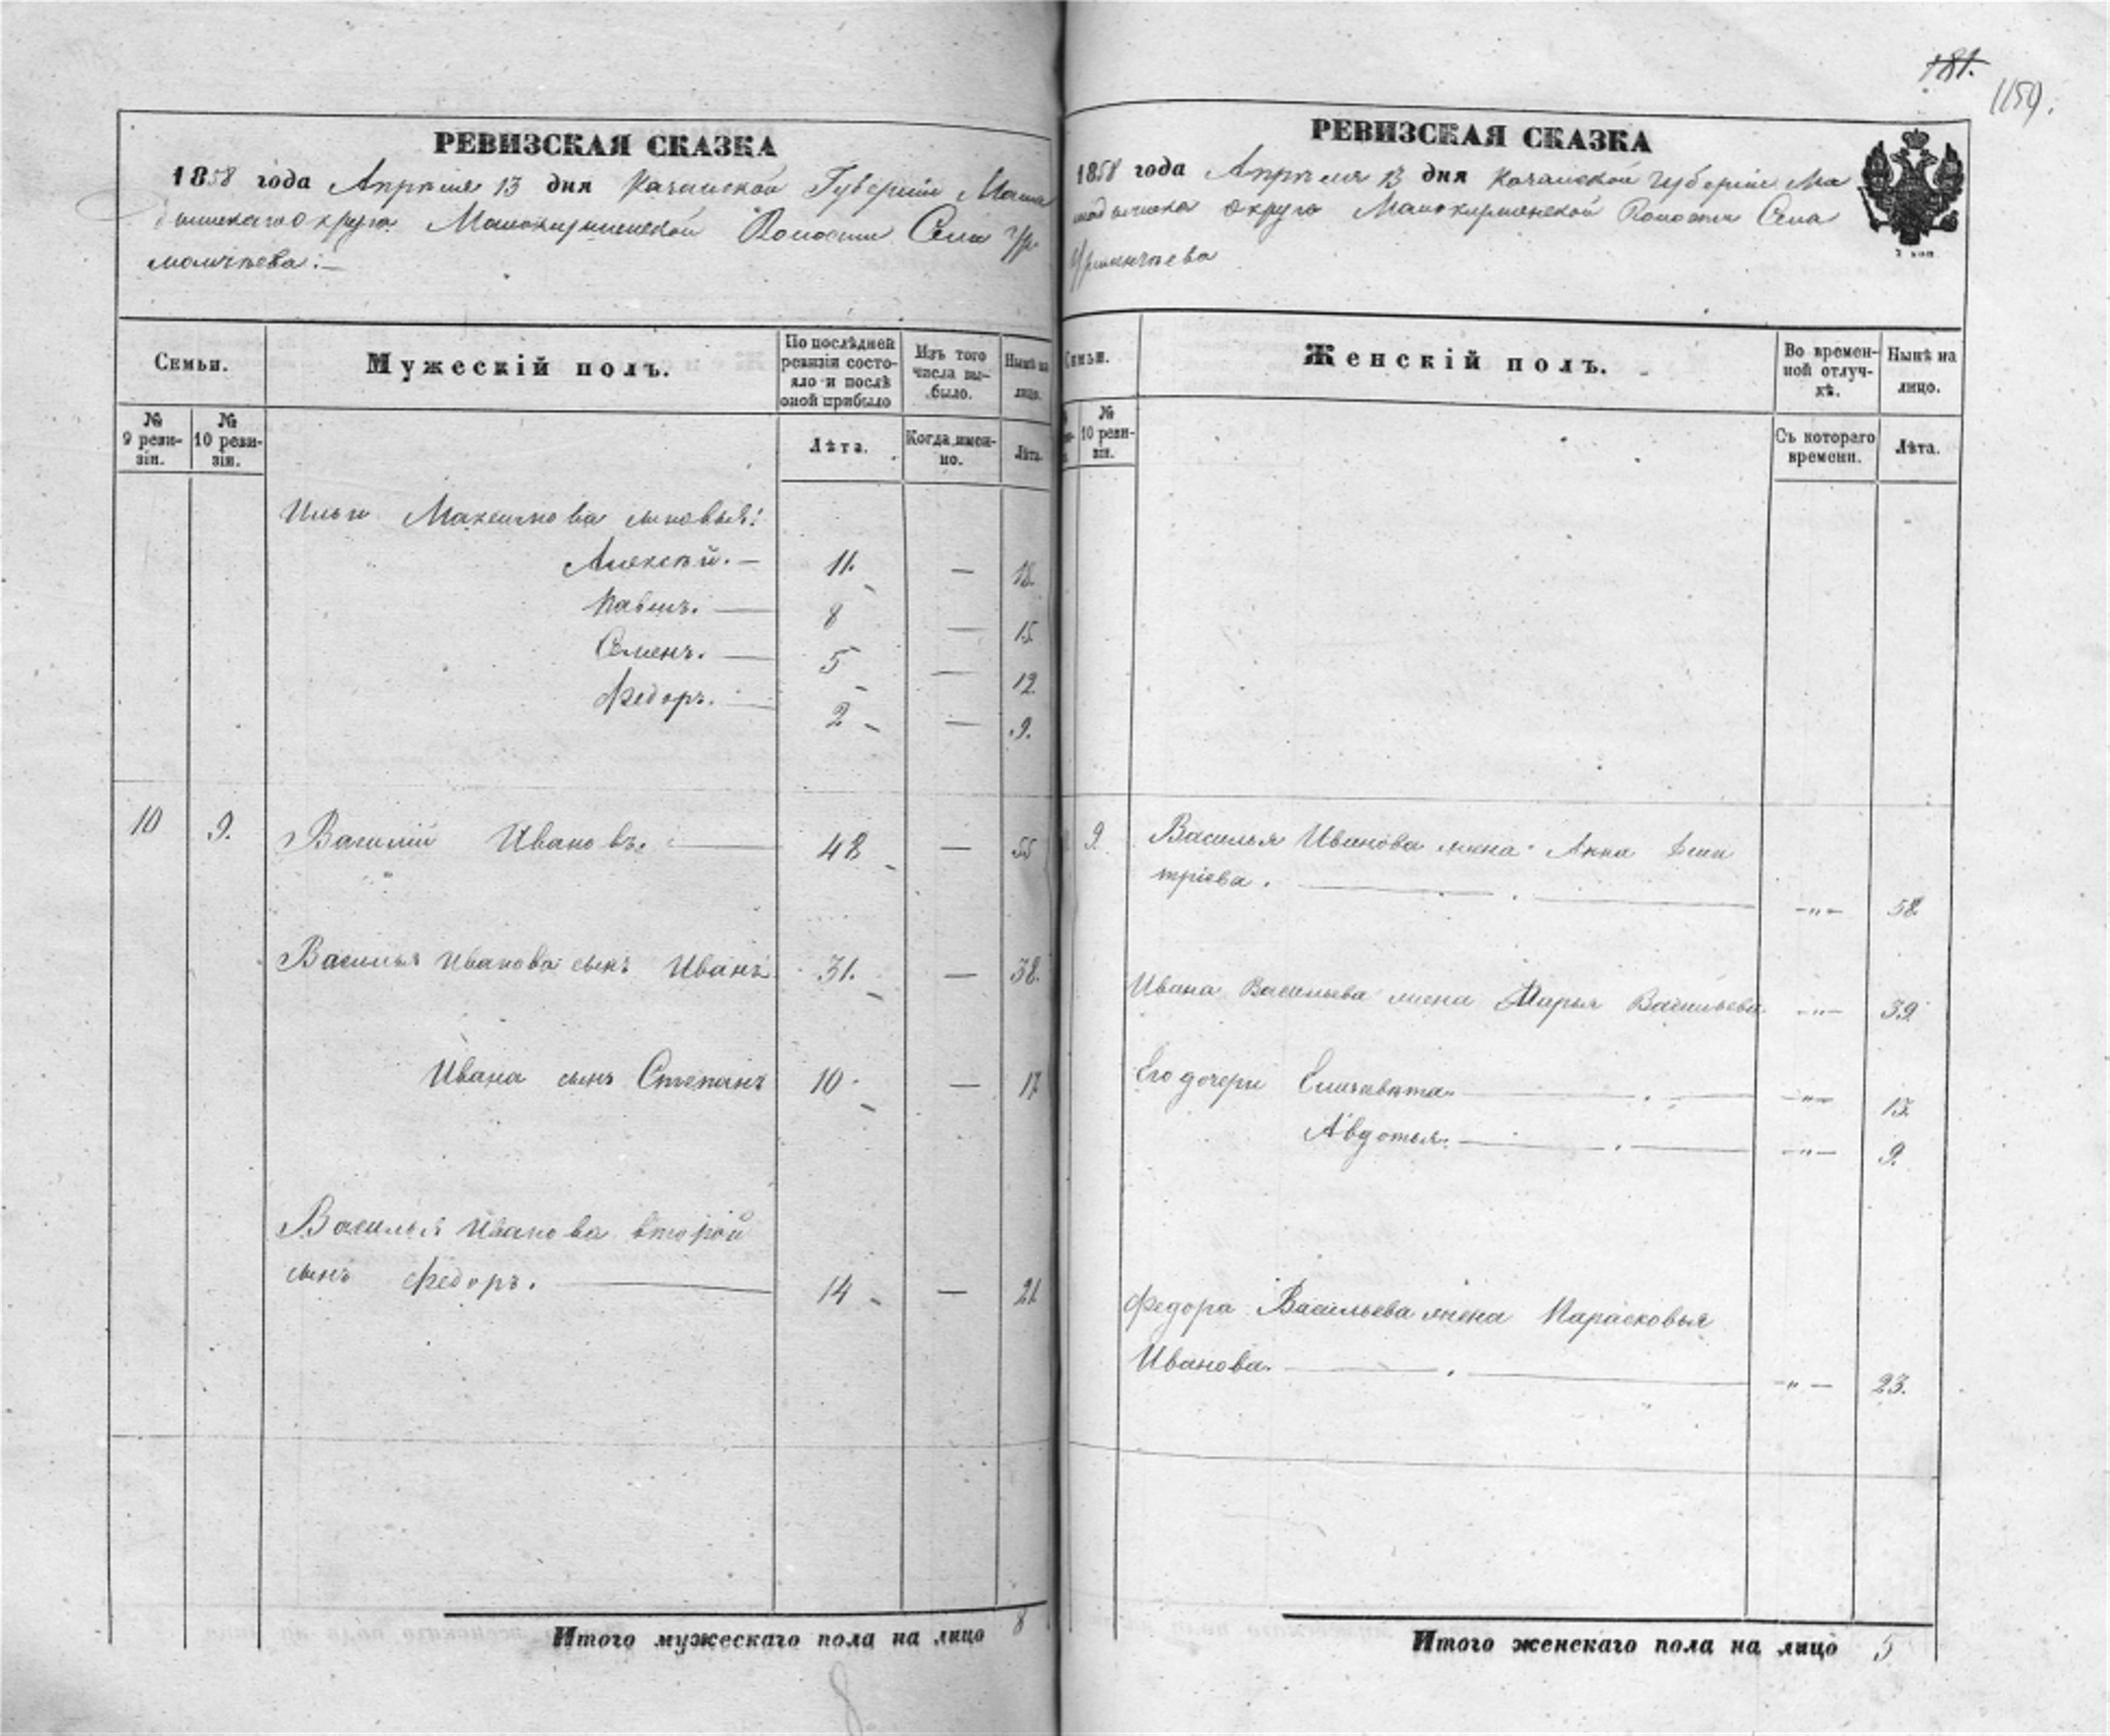 181.
1159.
РЕВИЗСКАЯ СКАЗКА
1858 года Апрѣля 13 дня Казанской Губерніи Мама
дышскаго округа Мамокирменской Волости Села Ур
маньчеева:—
Семьи.
Мужескій полъ.
По послѣдней ревизіи состо-
яло и послѣ
оной прибыло
Изъ того
числа вы-
было.
Нынѣ на
лицо.
№
9 реви-
зіи.
№
10 реви-
зіи.
Лѣта.
Когда имен-
но.
Лѣта.
Ильи Максимова сыновья:
Алексѣй.— 11. — 18.
Павелъ. — 8 — 15.
Семенъ. — 5 — 12.
Федоръ. — 2 — 9.
10 9. Василій Ивановъ. — 48 — 55
Василья Иванова сынъ Иванъ 31. — 38.
Ивана сынъ Степанъ 10. — 17.
Василья Иванова второй
сынъ Федоръ. — 14 — 21.
Итого мужескаго пола на лицо 8
8
РЕВИЗСКАЯ СКАЗКА
1858 года Апрѣля 13 дня Казанской Губерніи Ма
мадышска округа Мамокирменской Волости Села
2 коп.
Семьи.
Женскій полъ.
Во времен-
ной отлуч-
кѣ.
Нынѣ на
лицо.
№
10 реви-
зіи.
Съ котораго
времени.
Лѣта.
9. Василья Иванова жена Анна Дми
тріева. — „ — 58.
Ивана Васильева жена Марья Васильева — „ — 39.
Его дочери Елизавѣта. — „ — 15.
Авдотья. — „ — 9.
Федора Васильева жена Парасковья
Иванова. — „ — 23.
Итого женскаго пола на лицо 5